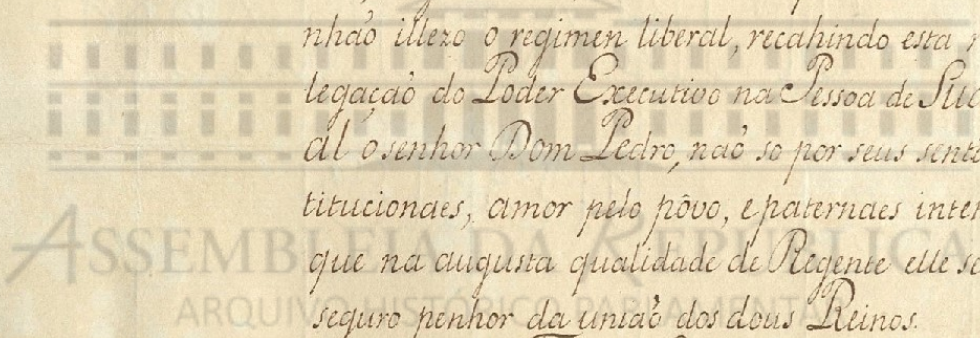 nhaõ illezo o regimen liberal, recahindo esta
legaçaõ do Poder Executivo na Pessoa de Sua
al o senhor Dom Pedro, naõ so por seus senti
titucionaes, amor pelo pôvo, e paternaes inten
que na augusta qualidade de Regente elle se
seguro penhor da uniaõ dos dous Reinos.
ASSEMBLEIA DA REPÚBLICA
ARQUIVO HISTÓRICO PARLAMENTAR